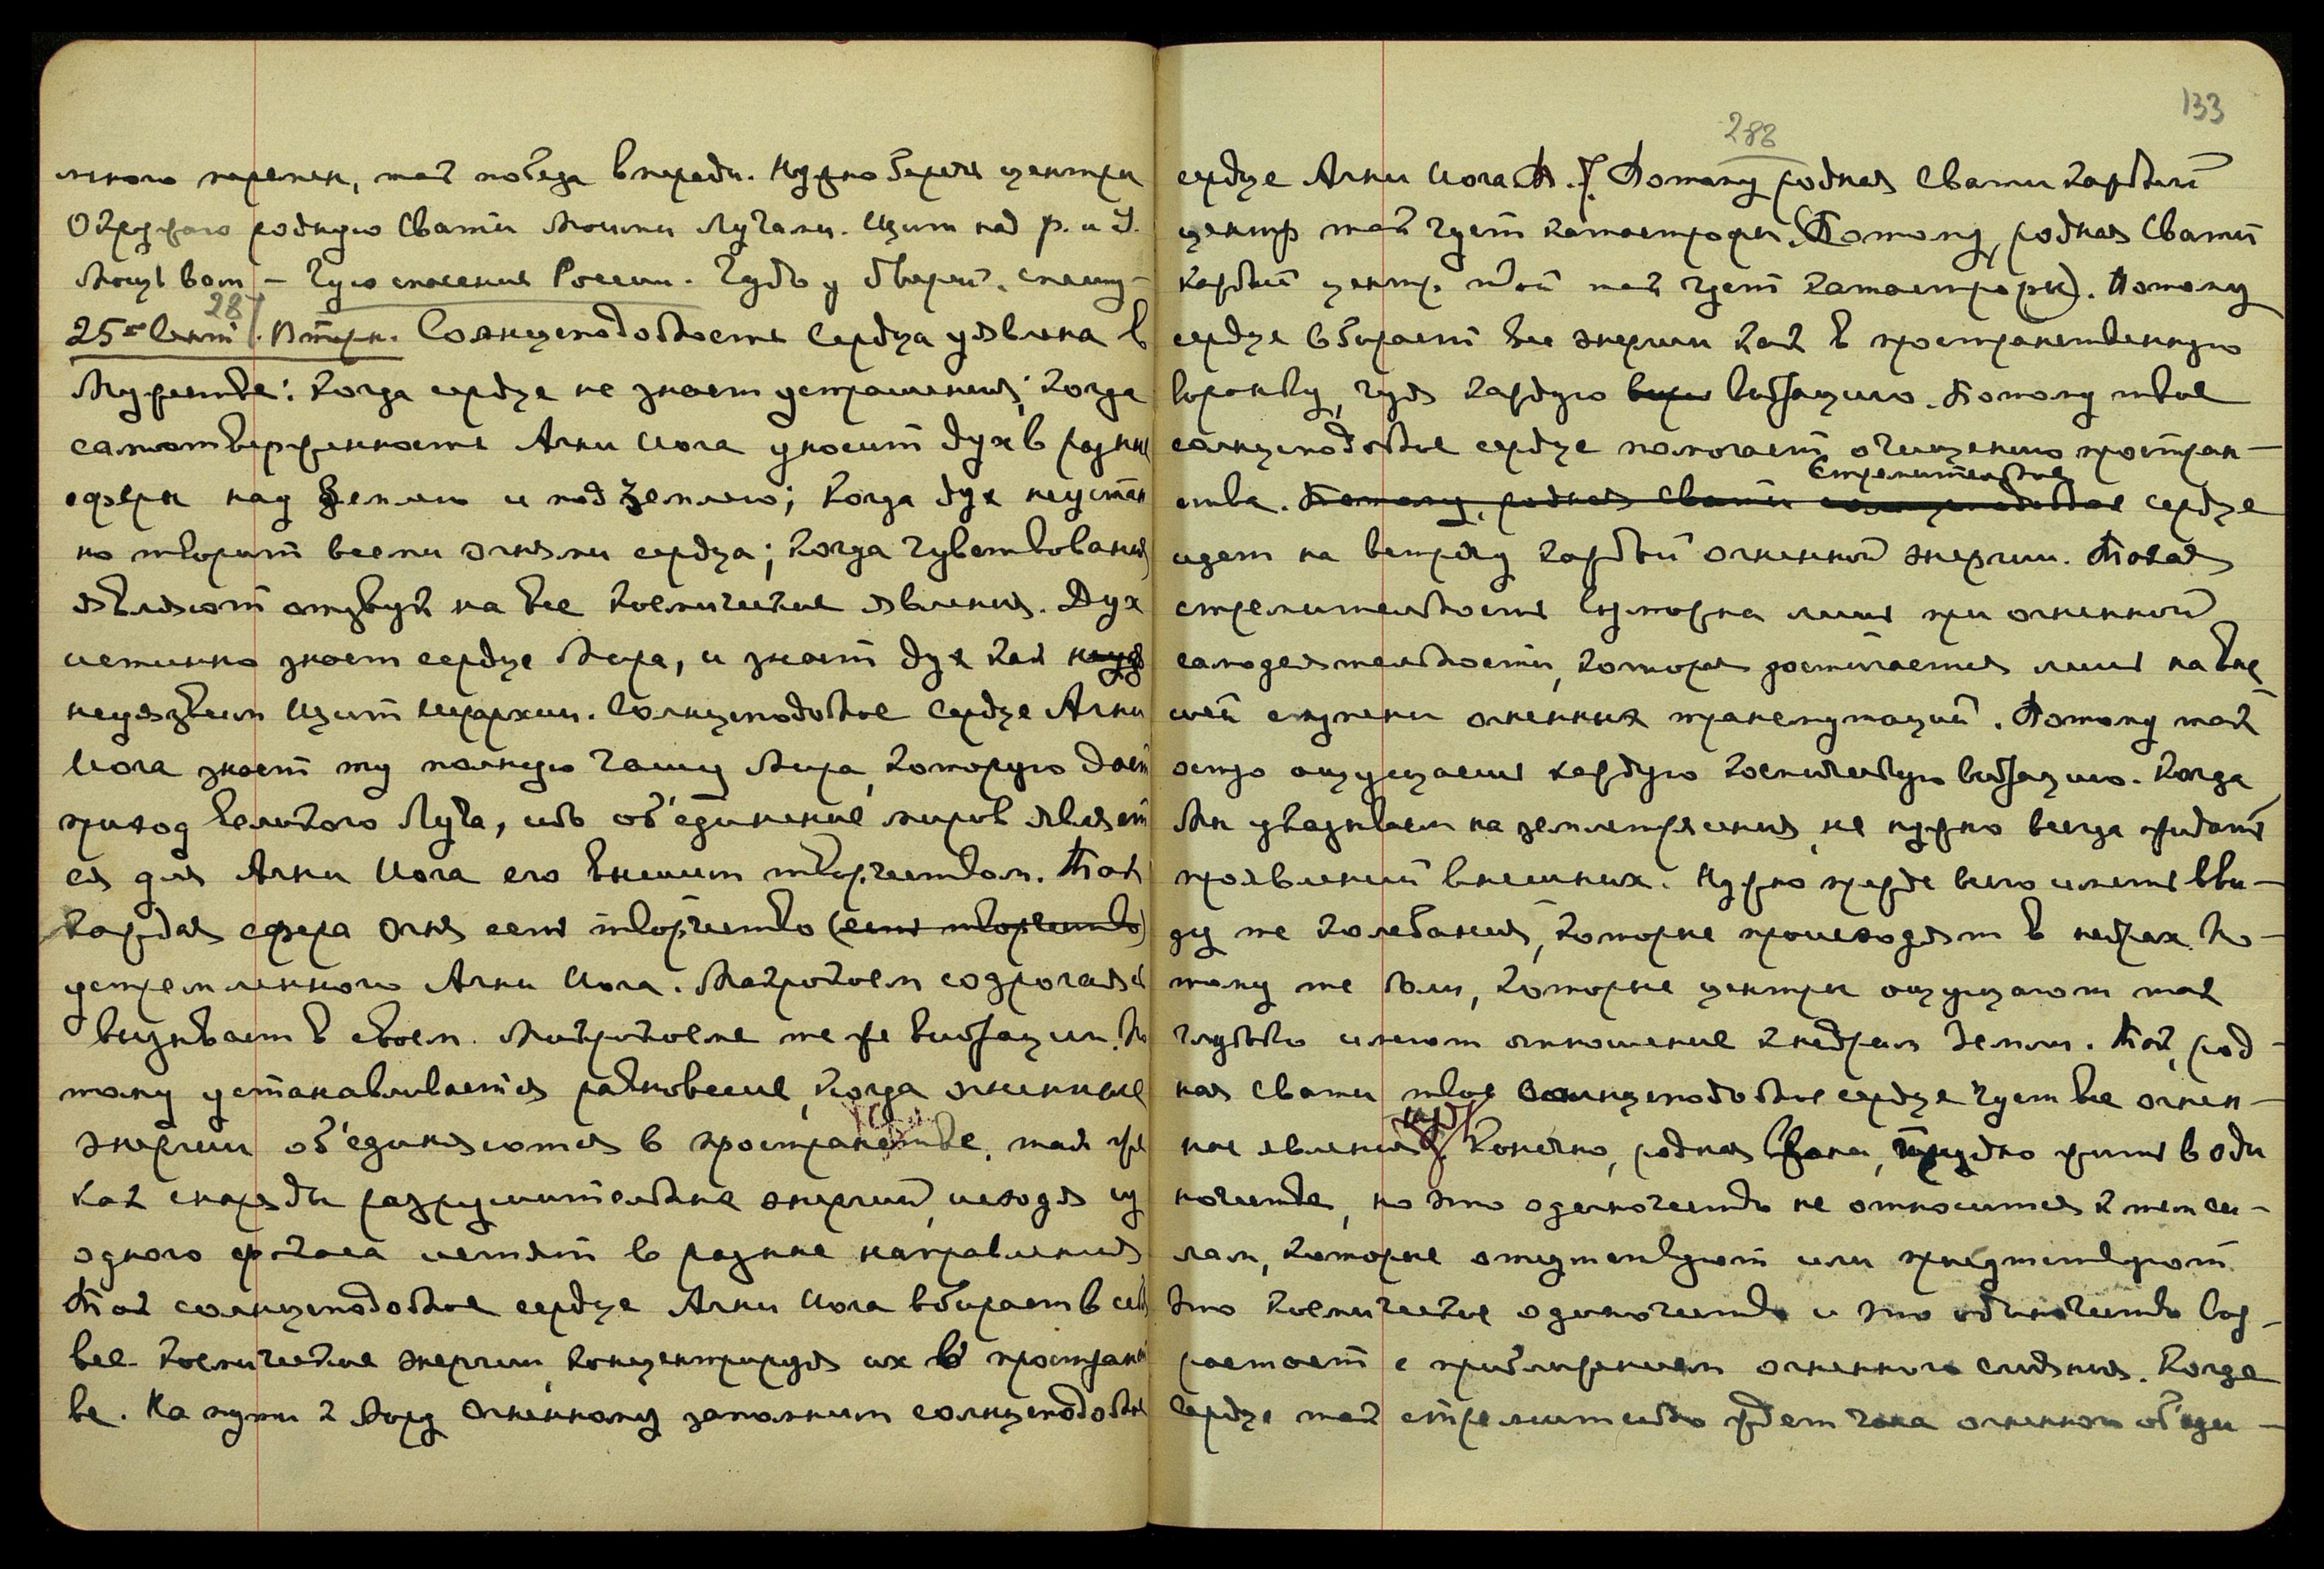 много перемен, так победа впереди. Нужно беречь центры
Окружаю родную Свати Моими Лучами. Щит над Р. и У.
Могу вот – Чую спасение России. Чудо у дверей, спешу –
287
25ое Сент. Вторн. Солнцеподобность Сердца уявлена в
Мужестве: когда сердце не знает устрашения; когда
самоотверженность Агни Иога уносит дух в разные
сферы над Землею и под Землею; когда дух неустан
но творит всеми огнями сердца; когда чувствования
являют отзвук на все космические явления. Дух
истинно знает сердце Мира, и знает дух как
неуязвим Щит Иерархии. Солнцеподобное Сердце Агни
Иога знает ту полную Чашу Мира, которую дает
приход Великого Луча, ибо об'единение миров являет
ся для Агни Иога его высшим творчеством. Так
каждая сфера Огня есть творчество (есть творчество)
устремленного Агни Иога. Макрокосм содрогаясь
вызывает в своем Микрокосме те же вибрации. По
тому устанавливается равновесие, когда огненные
энергии об'единяются в пространстве, так же
как снаряды разрушительных энергий, исходя из
одного фокуса летят в разные направления
Так солнцеподобное сердце Агни Иога вбирает в себя
все космические энергии, концентрируя их в пространст
ве. На пути к Миру Огненному запомним солнцеподобное
133
288
сердце Агни Иога. Потому родная Свати каждый
центр так чует катастрофы. (Потому, родная Свати
каждый центр твой так чует катастрофы). Потому
сердце вбирает все энергии как в пространственную
воронку, чуя каждую вибрацию. Потому твое
солнцеподобное сердце помогает очищению простран –
Стремительное
ства. Потому, родная Свати солнцеподобное сердце
идет на встречу каждой огненной энергии. Такая
стремительность возможна лишь при огненной
самодеятельности, которая достигается лишь на выс
шей ступени огненных трансмутаций. Потому так
остро ощущаешь каждую космическую вибрацию. Когда
Мы указываем на землетрясения, не нужно всегда ожидать
проявлений внешних. Нужно прежде всего иметь вви –
ду те колебания, которые происходят в недрах. По –
тому те боли, которые центры ощущают так
глубоко имеют отношение к недрам Земли. Так, род –
ная Свати твое солнцеподобное сердце чует все огнен –
ные явления. Конечно, родная Свати, трудно жить в оди
ночестве, но это одиночество не относится к тем си –
лам, которые отсутствуют или присутствуют.
Это космическое одиночество и это одиночество воз –
растает с приближением огненного слияния. Когда
Сердце так стремительно ждет часа огненного об'еди –